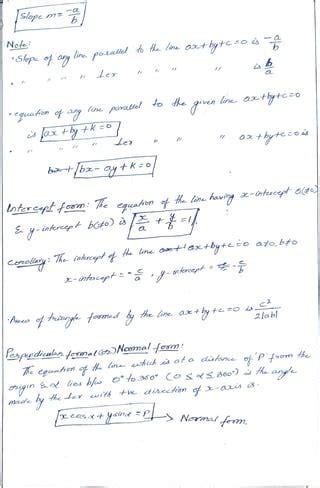 Slope m = -a/b
Note:
• Slope of any line parallel to the line ax+by+c=0 is -a/b
• " " " ⊥er " " " " is b/a
• equation of any line parallel to the given line ax+by+c=0
is ax+by+k=0
" " " ⊥er " " " ax+by+c=0 is
bx-ay+k=0
Intercept form: The equation of the line having x-intercept a(≠0)
& y-intercept b(≠0) is x/a + y/b = 1
corollary: The intercept of the line ax+by+c=0 a≠0, b≠0
x-intercept = -c/a , y-intercept = -c/b
• Area of triangle formed by the line ax+by+c=0 is c²/2|ab|
Perpendicular form (or) Normal form:
The equation of the line which is at a distance of 'P' from the
origin & α lies b/w 0° to 360° (0≤α≤360°) is the angle
made by the ⊥er with +ve direction of x-axis is
x cosα + y sinα = P → Normal form